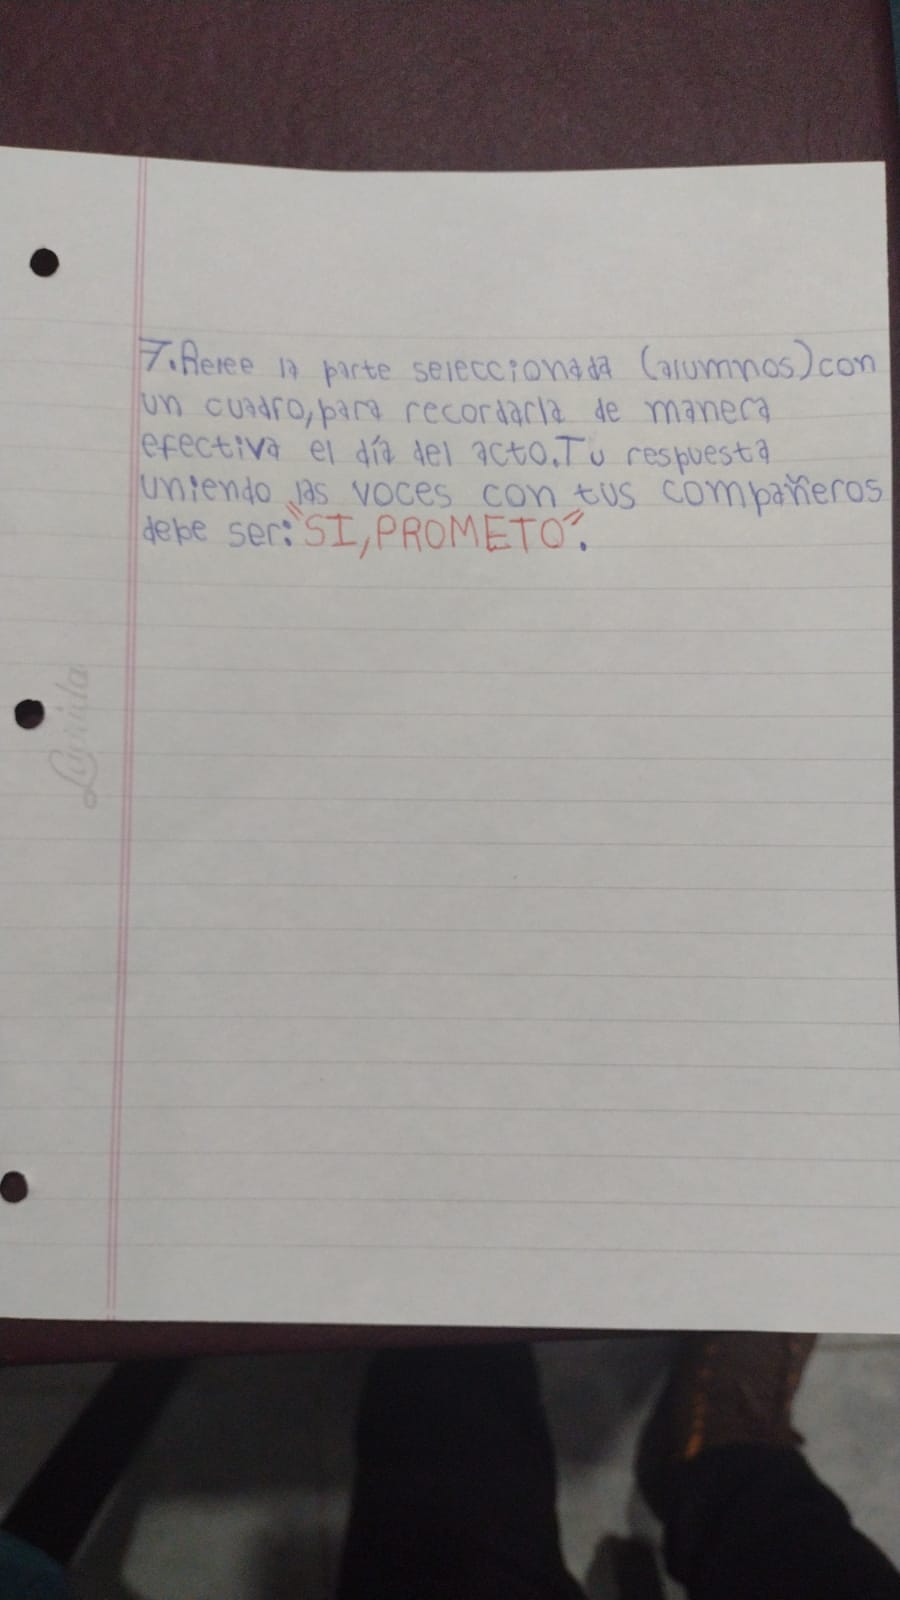 7.Relee la parte seleccionada (alumnos)con
un cuadro,para recordarla de manera
efectiva el día del acto.Tu respuesta
uniendo las voces con tus compañeros
debe ser:"SI,PROMETO".